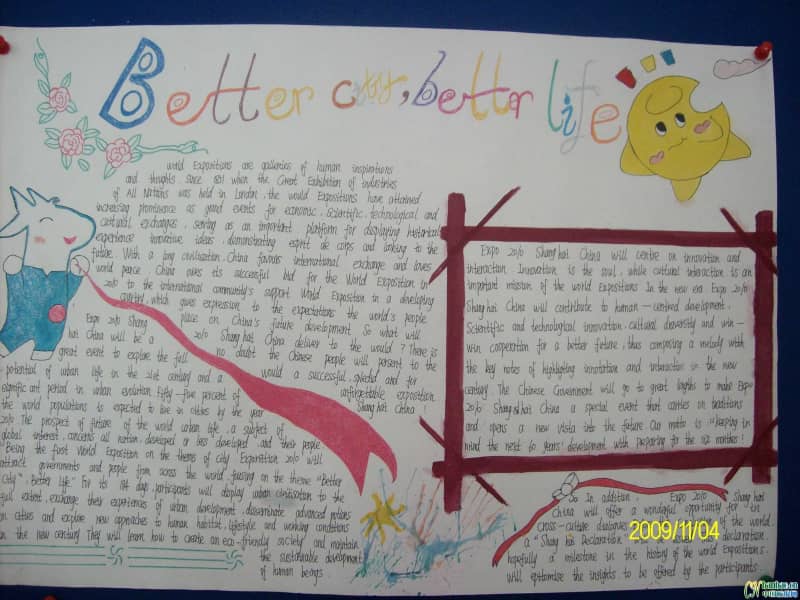 Better city, better life
World Expositions are galleries of human inspirations
and thoughts. Since 1851 when the Great Exhibition of Industries
of All Nations was held in London, the world Expositions have attained
increasing prominence as grand events for economic, scientific, technological and
cultural exchanges, serving as an important platform for displaying historical
experience innovative ideas, demonstrating esprit de corps and looking to the
future. With a long civilisation, China favours international exchange and loves
world peace. China owes its successful bid for the World Exposition in
2010 to the international community's support World Exposition in a developing
country, which gives expression to the expectations the world's people
place on China's future development. So what will
2010 Shang hai China deliver to the would? There is
no doubt the Chinese people will persent to the
would a successful, splechd and for
unforgettable exposition
Shang hai China!
Expo 2010 Shang
hai China will be a
great event to explore the full
potential of urban life in the 21st century and a
significant period in urban evolution fifty-five percent of
the world populations is expected to live in cities by the year
2010. The prospect of fufure of the world urban life, a subject of
global interest, concerns all nation, developed or less developed, and their people
Being the first World Exposition on the theme of city. Exposition 2010 will
attract governments and people from across the world, fousing on the theme "Better
City, Better Life." For its 184 days, participants will display urban civilisation to the
full extent, exchange their experiences of urban development, disseminate advanced notions
on cities and explore new approaches to human habitat, lifestyle and working conditions
in the new century They will learn how to create an eco-friendly society and maintain
the sustainable development
of human beings
Expo 2010 Shanghai China will centre on innovation and
interaction Innovation is the soul, while cultural interaction is an
important mission of the world Expositions In the new era Expo 2010
Shanghai China will contribute to human-centred development,
Scientific and technological innovation, cultural diversity and win-
win cooperation for a better future, thus composing a melody with
the key notes of highlighting innotation and interaction in the new
century. The Chinese Government will go to great lngths to make Expo
2010 Shanghai China a special event that carries on traditions
and opens a new vista into the future Our motto is: "keeping in
mind the next 60 years' development with preparing for the six months!
So In addition, Expo 2010 Shang hai
China will offer a wonderful opportunity for in
cross-culture dialoues of the world.
a "Shang hai Declaration Declaration
hopefully a milestone in the history of the world Expositions
will epitomise the insights to be offered by the participants
2009/11/04